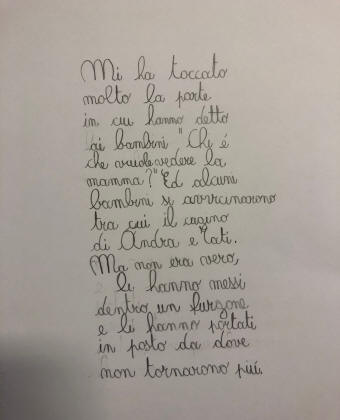 Mi ha toccato
molto la parte
in cui hanno detto
ai bambini "Chi é
che vuole vedere la
mamma?" Ed alcuni
bambini si avvicinarono
tra cui il cugino
di Andra e Tati.
Ma non era vero,
li hanno messi
dentro un furgone
e li hanno portati
in posto da dove
non tornarono più.